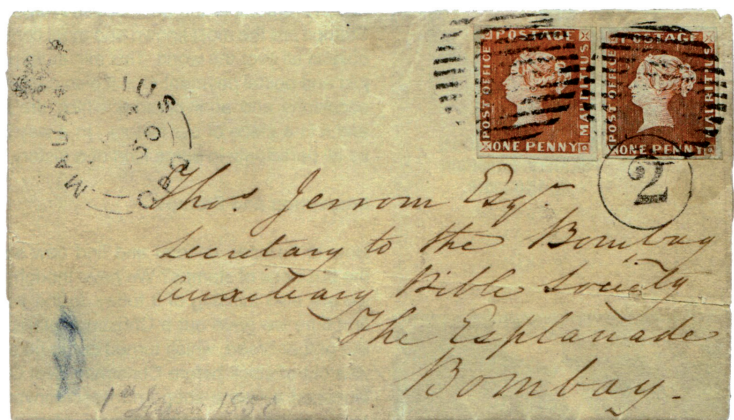 POSTAGE POST OFFICE MAURITIUS ONE PENNY
POSTAGE POST OFFICE MAURITIUS ONE PENNY
MAURITIUS GPO
2
Thos. Jerrom Esqr.
Secretary to the Bombay
Auxiliary Bible Society
The Esplanade
Bombay.
1850